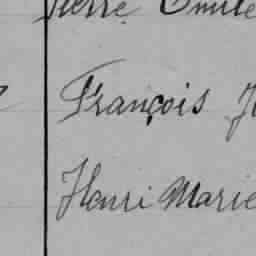 Pierre Emile
François
Henri Marie